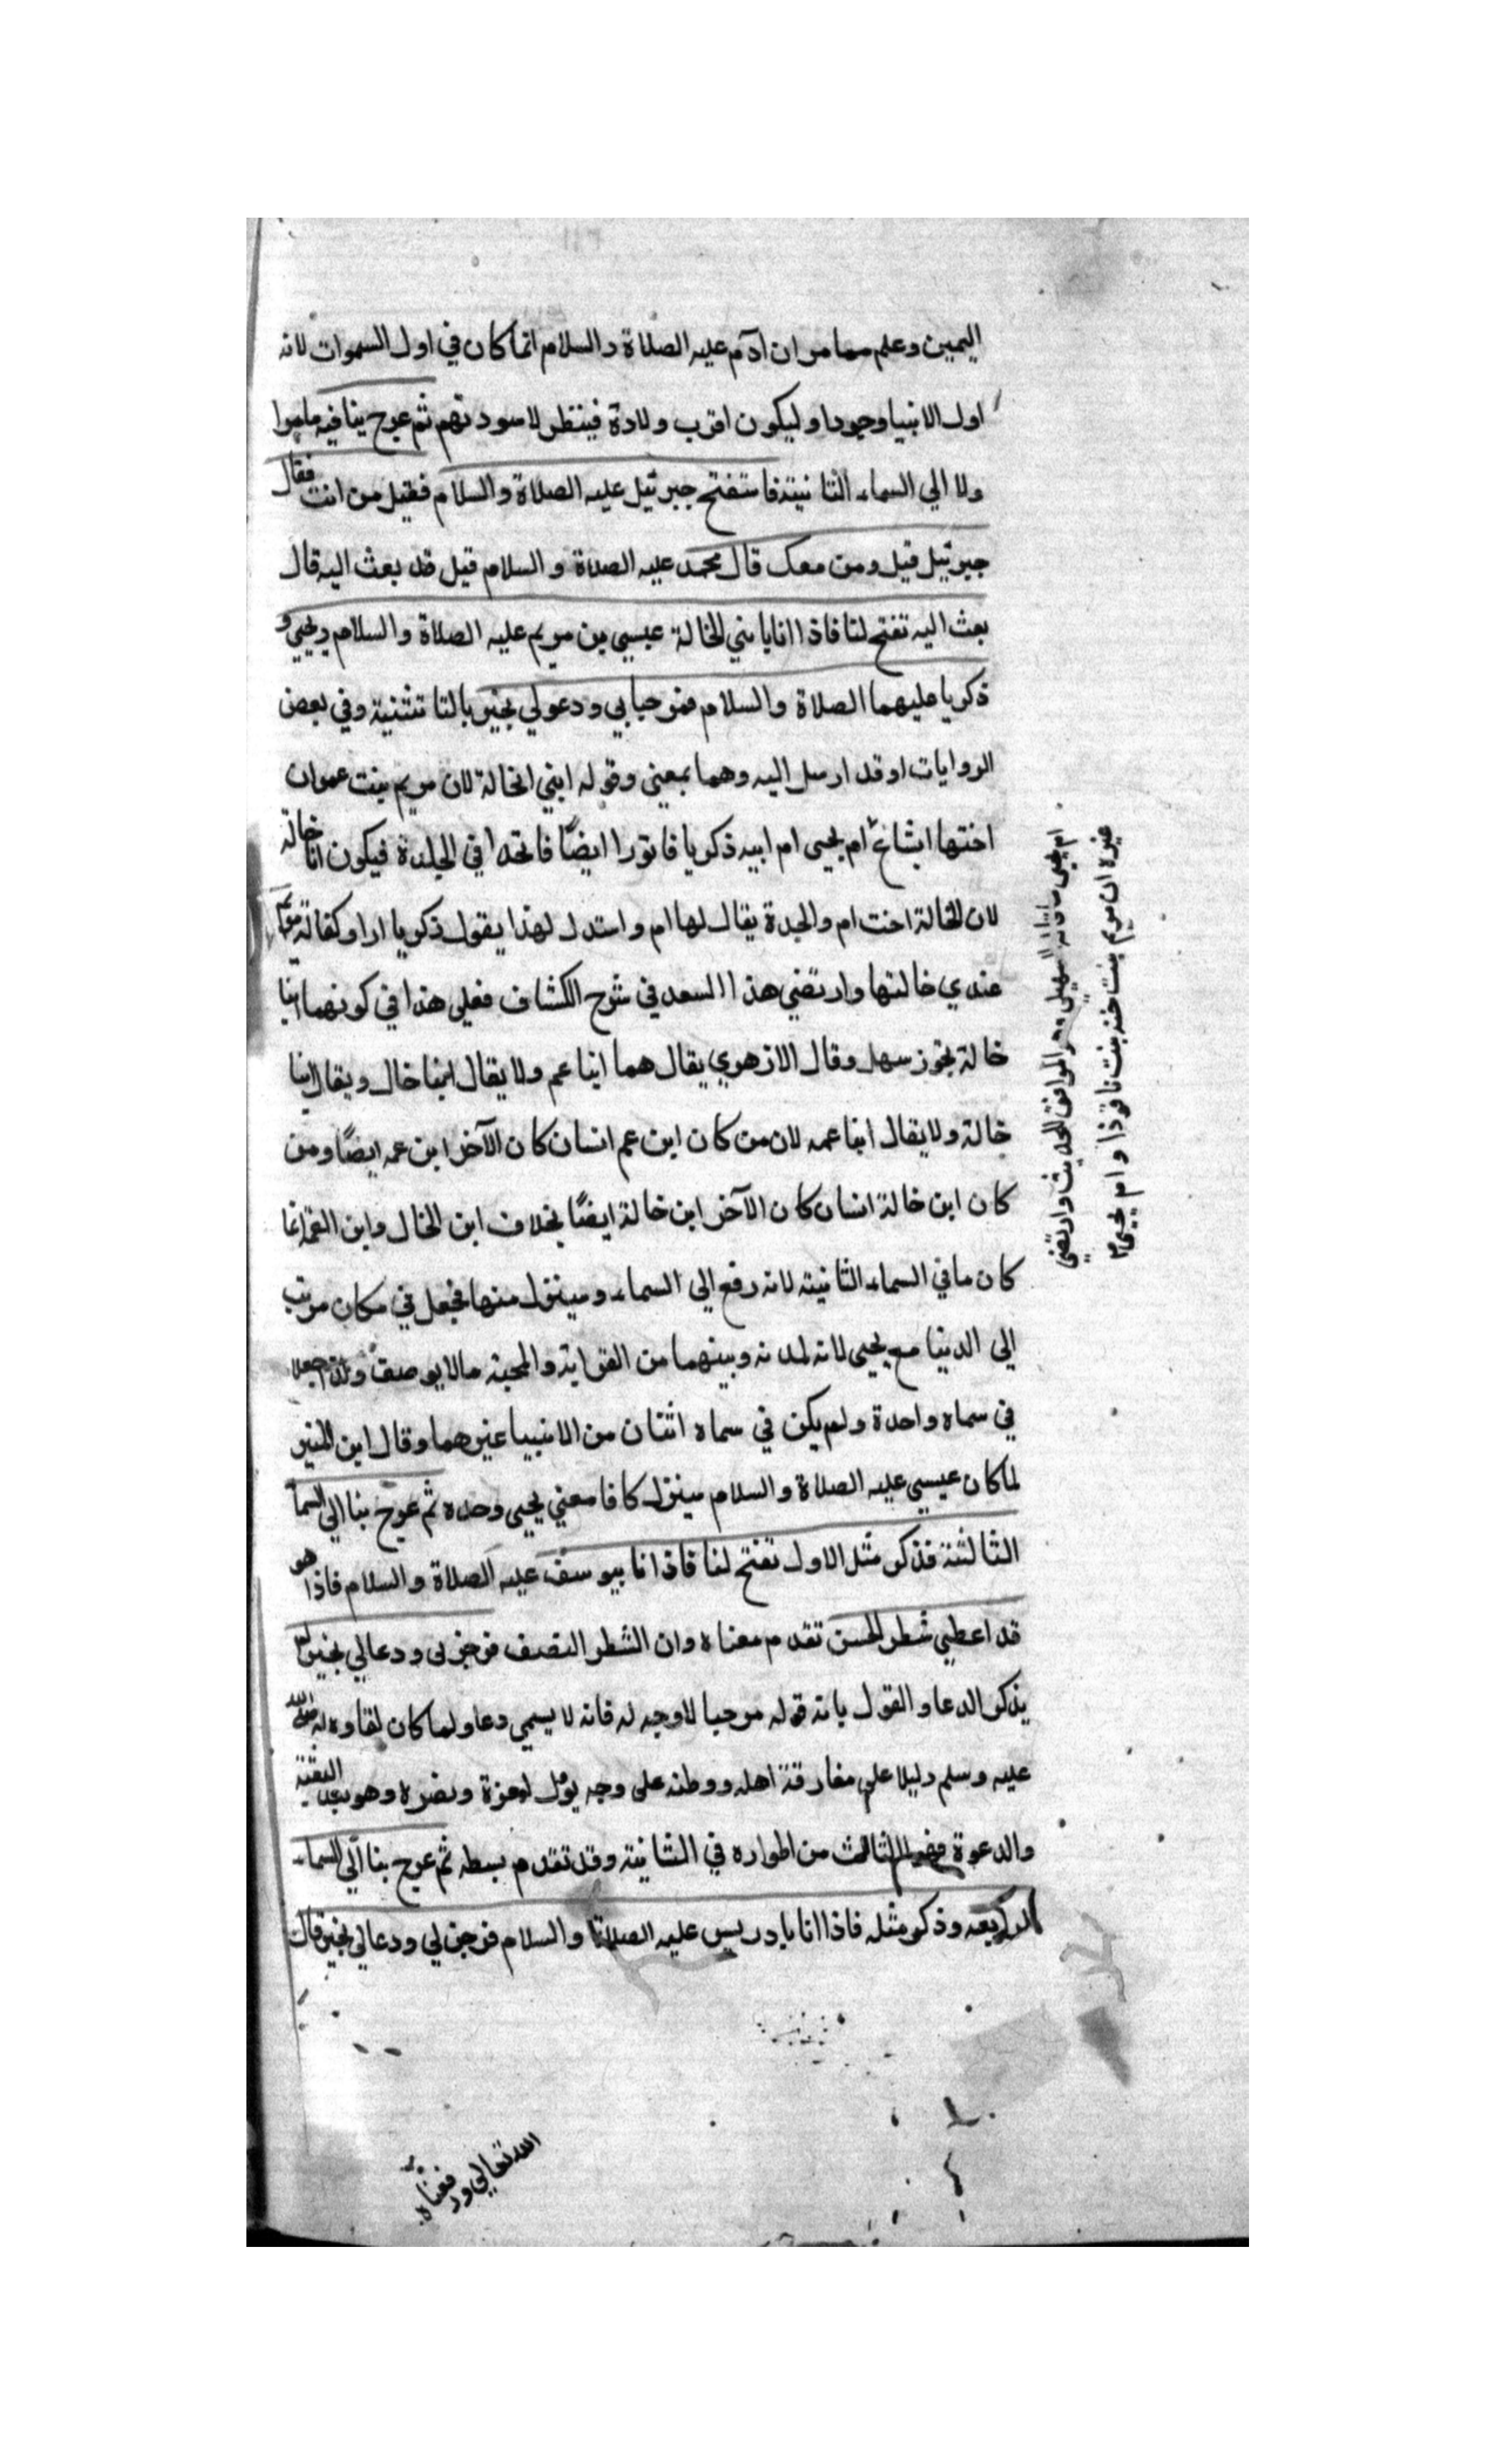 اليمين وعلم مما مر ان آدم عليه الصلاة والسلام انما كان في اول السموات لانه
اول الانبيا وجودا وليكون اقرب ولادة فينظر لاسودتهم ثم عرج بنا فيه ما مر
ولا الي السماء الثانية فاستفتح جبرئيل عليه الصلاة والسلام فقيل من انت فقال
جبرئيل قيل ومن معك قال محمد عليه الصلاة والسلام قيل قد بعث اليه قال
بعث اليه تفتح لنا فاذا انا بابني الخالة عيسي بن مريم عليه الصلاة والسلام ويحيي و
ذكريا عليهما الصلاة والسلام فرحبا بي ودعو لي بخير بالتا تثنية وفي بعض
الروايات او قد ارسل اليه وهما بمعني وقوله ابني الخالة لان مريم بنت عمران
اختها ايشاع ام يحيي ام ابيه ذكريا فا ايضًا في الجدة فيكون انا خالة
لان الخالة اخت ام والجدة يقال لها ام واستدل لهذا بقول ذكريا اراد كفالة مريم
عندي خالتها وارتضي هذا السعد في شرح الكشاف فعلي هذا في كونهما ابنا
خالة تجوز سهل وقال الازهري يقال هما ابنا عم ولا يقال ابنا خال ويقال ابنا
خالة ولا يقال ابنا عمه لان من كان ابن عم انسان كان الآخر ابن عمه ايضًا ومن
كان ابن خالة انسان كان الآخر ابن خالة ايضًا بخلاف ابن الخال وابن العمه انما
كان ما في السماء الثانية لانه رفع الي السماء وسينزل منها فجعل في مكان مرتب
الي الدنيا مع يحيي لانه لدنه وبينهما من القرابة والمحبة مالا يوصف ولذا جعلا
في سماه واحدة ولم يكن في سماه اثنان من الانبيا غيرهما وقال ابن المنير
لما كان عيسي عليه الصلاة والسلام سينزل كا فا معني يحيي وحده ثم عرج بنا الي السما
الثالثة فذكر مثل الاول تفتح لنا فاذا انا بيوسف عليه الصلاة والسلام فاذا هو
قد اعطي شطر الحسن تقدم معناه وان الشطر النصف فرحب بي ودعالي بخير لم
يذكر الدعا والقول بانه قوله مرحبا لاوجه له فانه لا يسمي دعا ولما كان لقاوه له صلي الله
عليه وسلم دليلا علي مفارقة اهله ووطنه علي وجه يؤل لعزة ونصره وهو بعد البعثة
والدعوة فهو الثالث من اطواره في الثانية وقد تقدم بسطه ثم عرج بنا الي السماء
الرابعه وذكر مثله فاذا انا بادريس عليه الصلاة والسلام فرحب لي ودعالي بخير قال
الله تعالي ورفعناه
غيره ان مريم بنت حنه بنت فاقوذا وام يحيي
ام يحيي ما قاله السهيلي وهو الموافق الحديث وارتضي